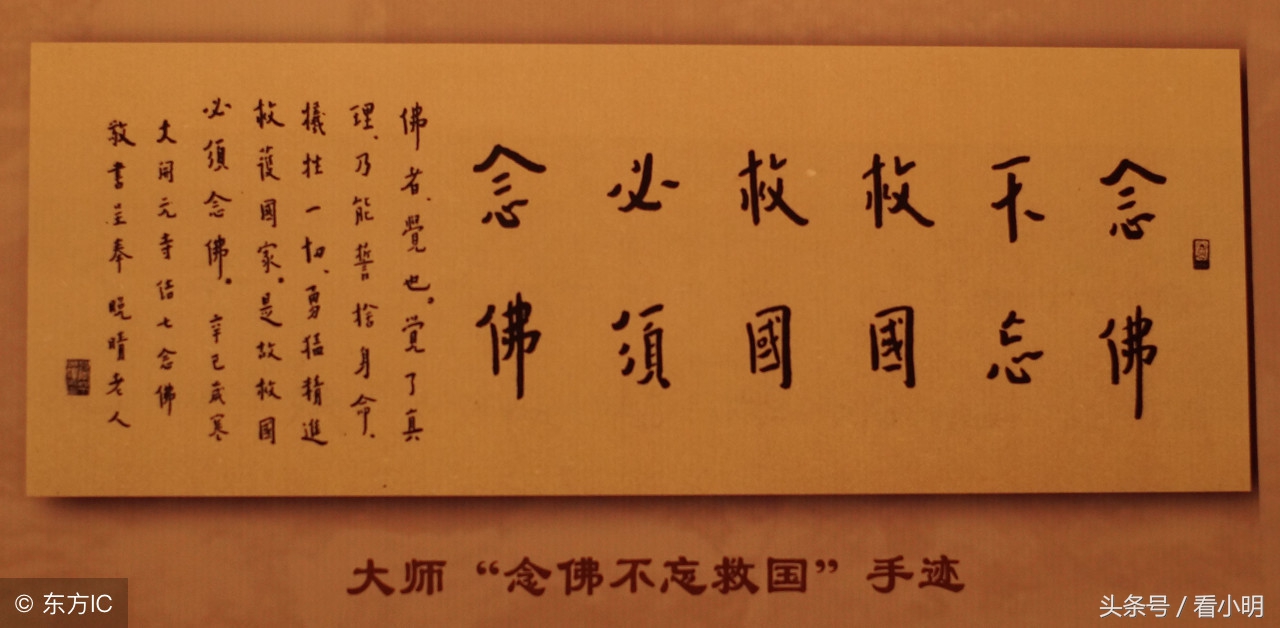 念佛
不忘
救國
救國
必須
念佛
佛者、覺也。覺了真
理、乃能誓捨身命、
犧牲一切、勇猛精進
救護國家。是故救國
必須念佛。辛巳歲寒
大開元寺結七念佛
敬書呈奉 晚晴老人
大师“念佛不忘救国”手迹
© 东方IC
头条号 / 看小明